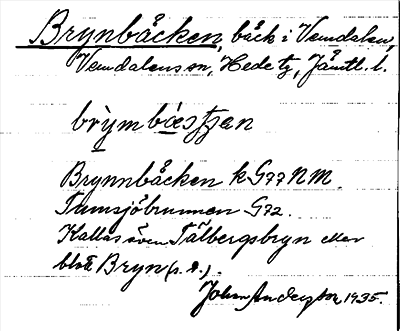 Brynbäcken, bäck i Vemdalen,
Vemdalens sn, Hede tg, Jämtl. l.
brỳmbæstʃan
Brynnbäcken k G77 NM.
Tumsjöbrunnen G72.
Kallas även Tälbergsbryn eller
blott Bryn (s. d.).
Johan Anderson 1935.